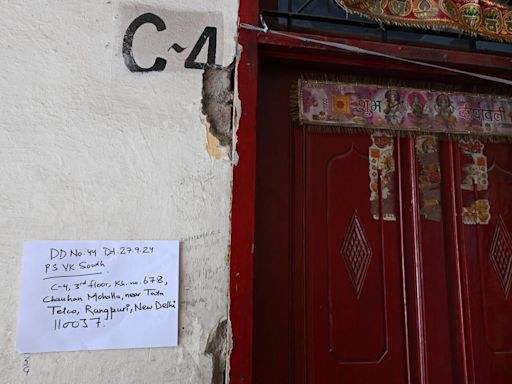 C-4
शुभ दीपावली
DD No. 44 Dt. 27.9.24
PS VK South
C-4, 3rd floor, Kh. no. 678,
Chauhan Mohalla, near Tata
Telco, Rangpuri, New Delhi
110037.